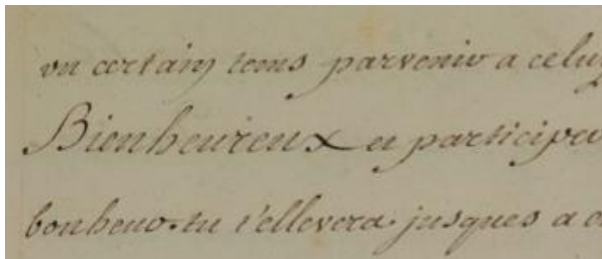 un certain tems parvenir a celuy
Bienheureux et participer
bonheur. tu t'ellevera jusques a